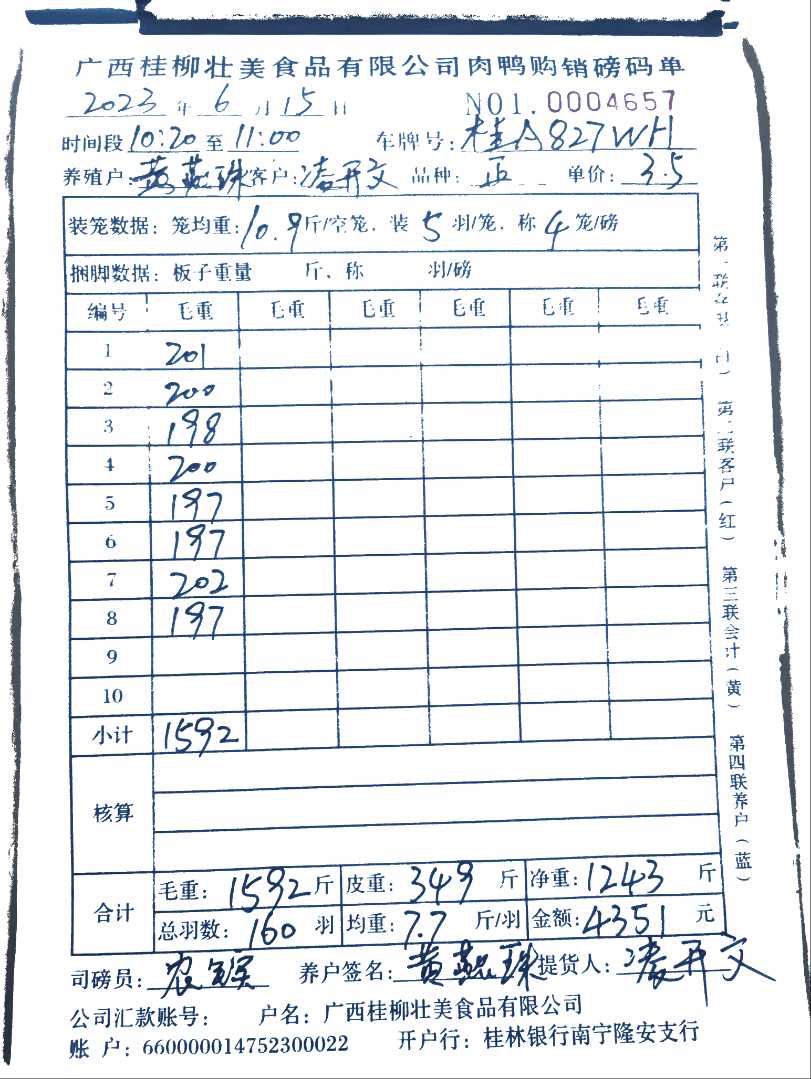 广西桂柳壮美食品有限公司肉鸭购销磅码单
2023 年 6 月 15 日 NO1.0004657
时间段 10:20 至 11:00 车牌号: 桂A827WH
养殖户: 黄 珠 客户: 凌开文 品种: 正 单价: 3.5
装笼数据: 笼均重: 10.9 斤/空笼、装 5 羽/笼、称 4 笼/磅
捆脚数据: 板子重量 斤、称 羽/磅
编号 毛重 毛重 毛重 毛重 毛重 毛重
1 201
2 200
3 198
4 200
5 197
6 197
7 202
8 197
9
10
小计 1592
核算
合计
毛重: 1592 斤 皮重: 349 斤 净重: 1243 斤
总羽数: 160 羽 均重: 7.7 斤/羽 金额: 4351 元
司磅员: 农 养户签名: 黄 珠 提货人: 凌开文
公司汇款账号: 户名: 广西桂柳壮美食品有限公司
账 户: 660000014752300022 开户行: 桂林银行南宁隆安支行
第二联客户(红)
第三联会计(黄)
第四联养户(蓝)